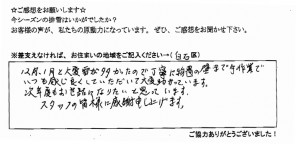 ☆ご感想をお願いします☆
今シーズンの排雪はいかがでしたか？
お客様の声が、私たちの原動力になっています。ぜひ、ご感想をお聞かせ下さい。
※差支えなければ、お住まいの地域をご記入ください→（白石区）
12月、1月と大変雪が多かったので丁寧に
いつも感じ良くしていただいて大変助かっています。
次年度もお世話になりたいと思っています。
スタッフの皆様に感謝申し上げます。
ご協力ありがとうございました！